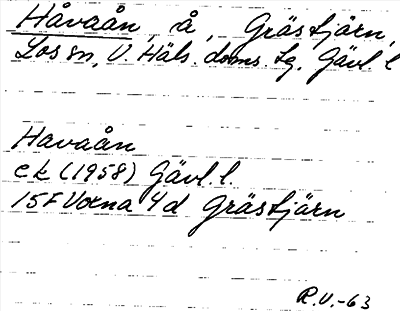 Håvaån, å, Grästjärn,
Los sn, V. Häls. doms. tg, Gävl. l
Havaån
ek (1958) Gävl. l.
15F Voxna 4d Grästjärn
R.V.-63